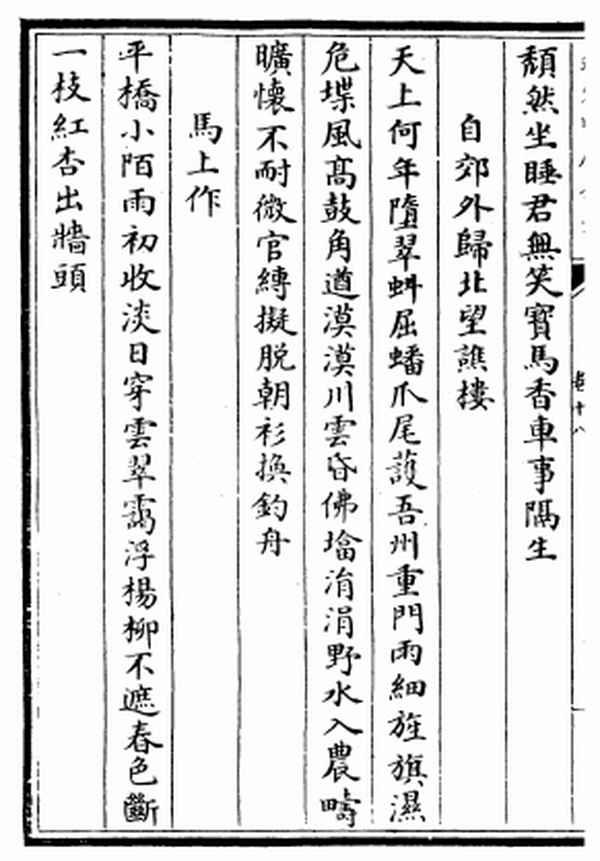 頽然坐睡君無笑寳馬香車事隔生
自郊外歸北望譙樓
天上何年墮翠虯屈蟠爪尾護吾州重門雨細旌旗濕
危堞風髙鼓角遒漠漠川雲昏佛㙮涓涓野水入農疇
曠懐不耐微官縛擬脱朝衫換釣舟
馬上作
平橋小陌雨初收淡日穿雲翠靄浮楊柳不遮春色斷
一枝紅杏出牆頭
卷十八